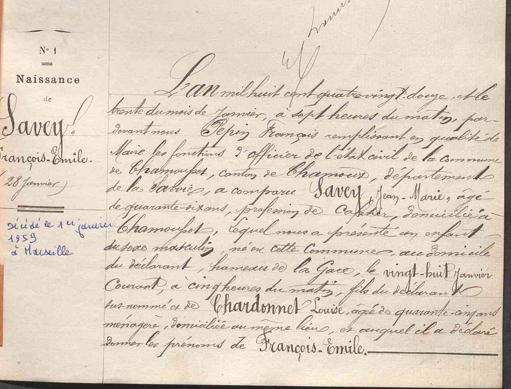 N° 1
Naissance
de
Savey
François-Emile.
(28 Janvier)
Décédé le 1er janvier
1959
à Marseille
L'an mil huit cent quatre vingt-douze, et le
trente du mois de Janvier, à sept heures du matin, par-
devant nous Pepin François remplissant en qualité de
Maire les fonctions d'officier de l'état civil de la commune
de Chamousset, canton de Chamoux, département
de la Savoie, a comparu Savey, Jean-Marie, âgé
de quarante-six ans, profession de domicilié à
Chamousset, lequel nous a présenté un enfant
du sexe masculin, né en cette Commune, au domicile
du déclarant, hameau de la Gare, le vingt-huit Janvier
Courant, à cinq heures du matin, fils du déclarant
sus-nommé et de Chardonnet Louise, âgée de quarante-
ménagère, domiciliée au même lieu, et auquel il a déclaré
donner les prénoms de François-Emile.